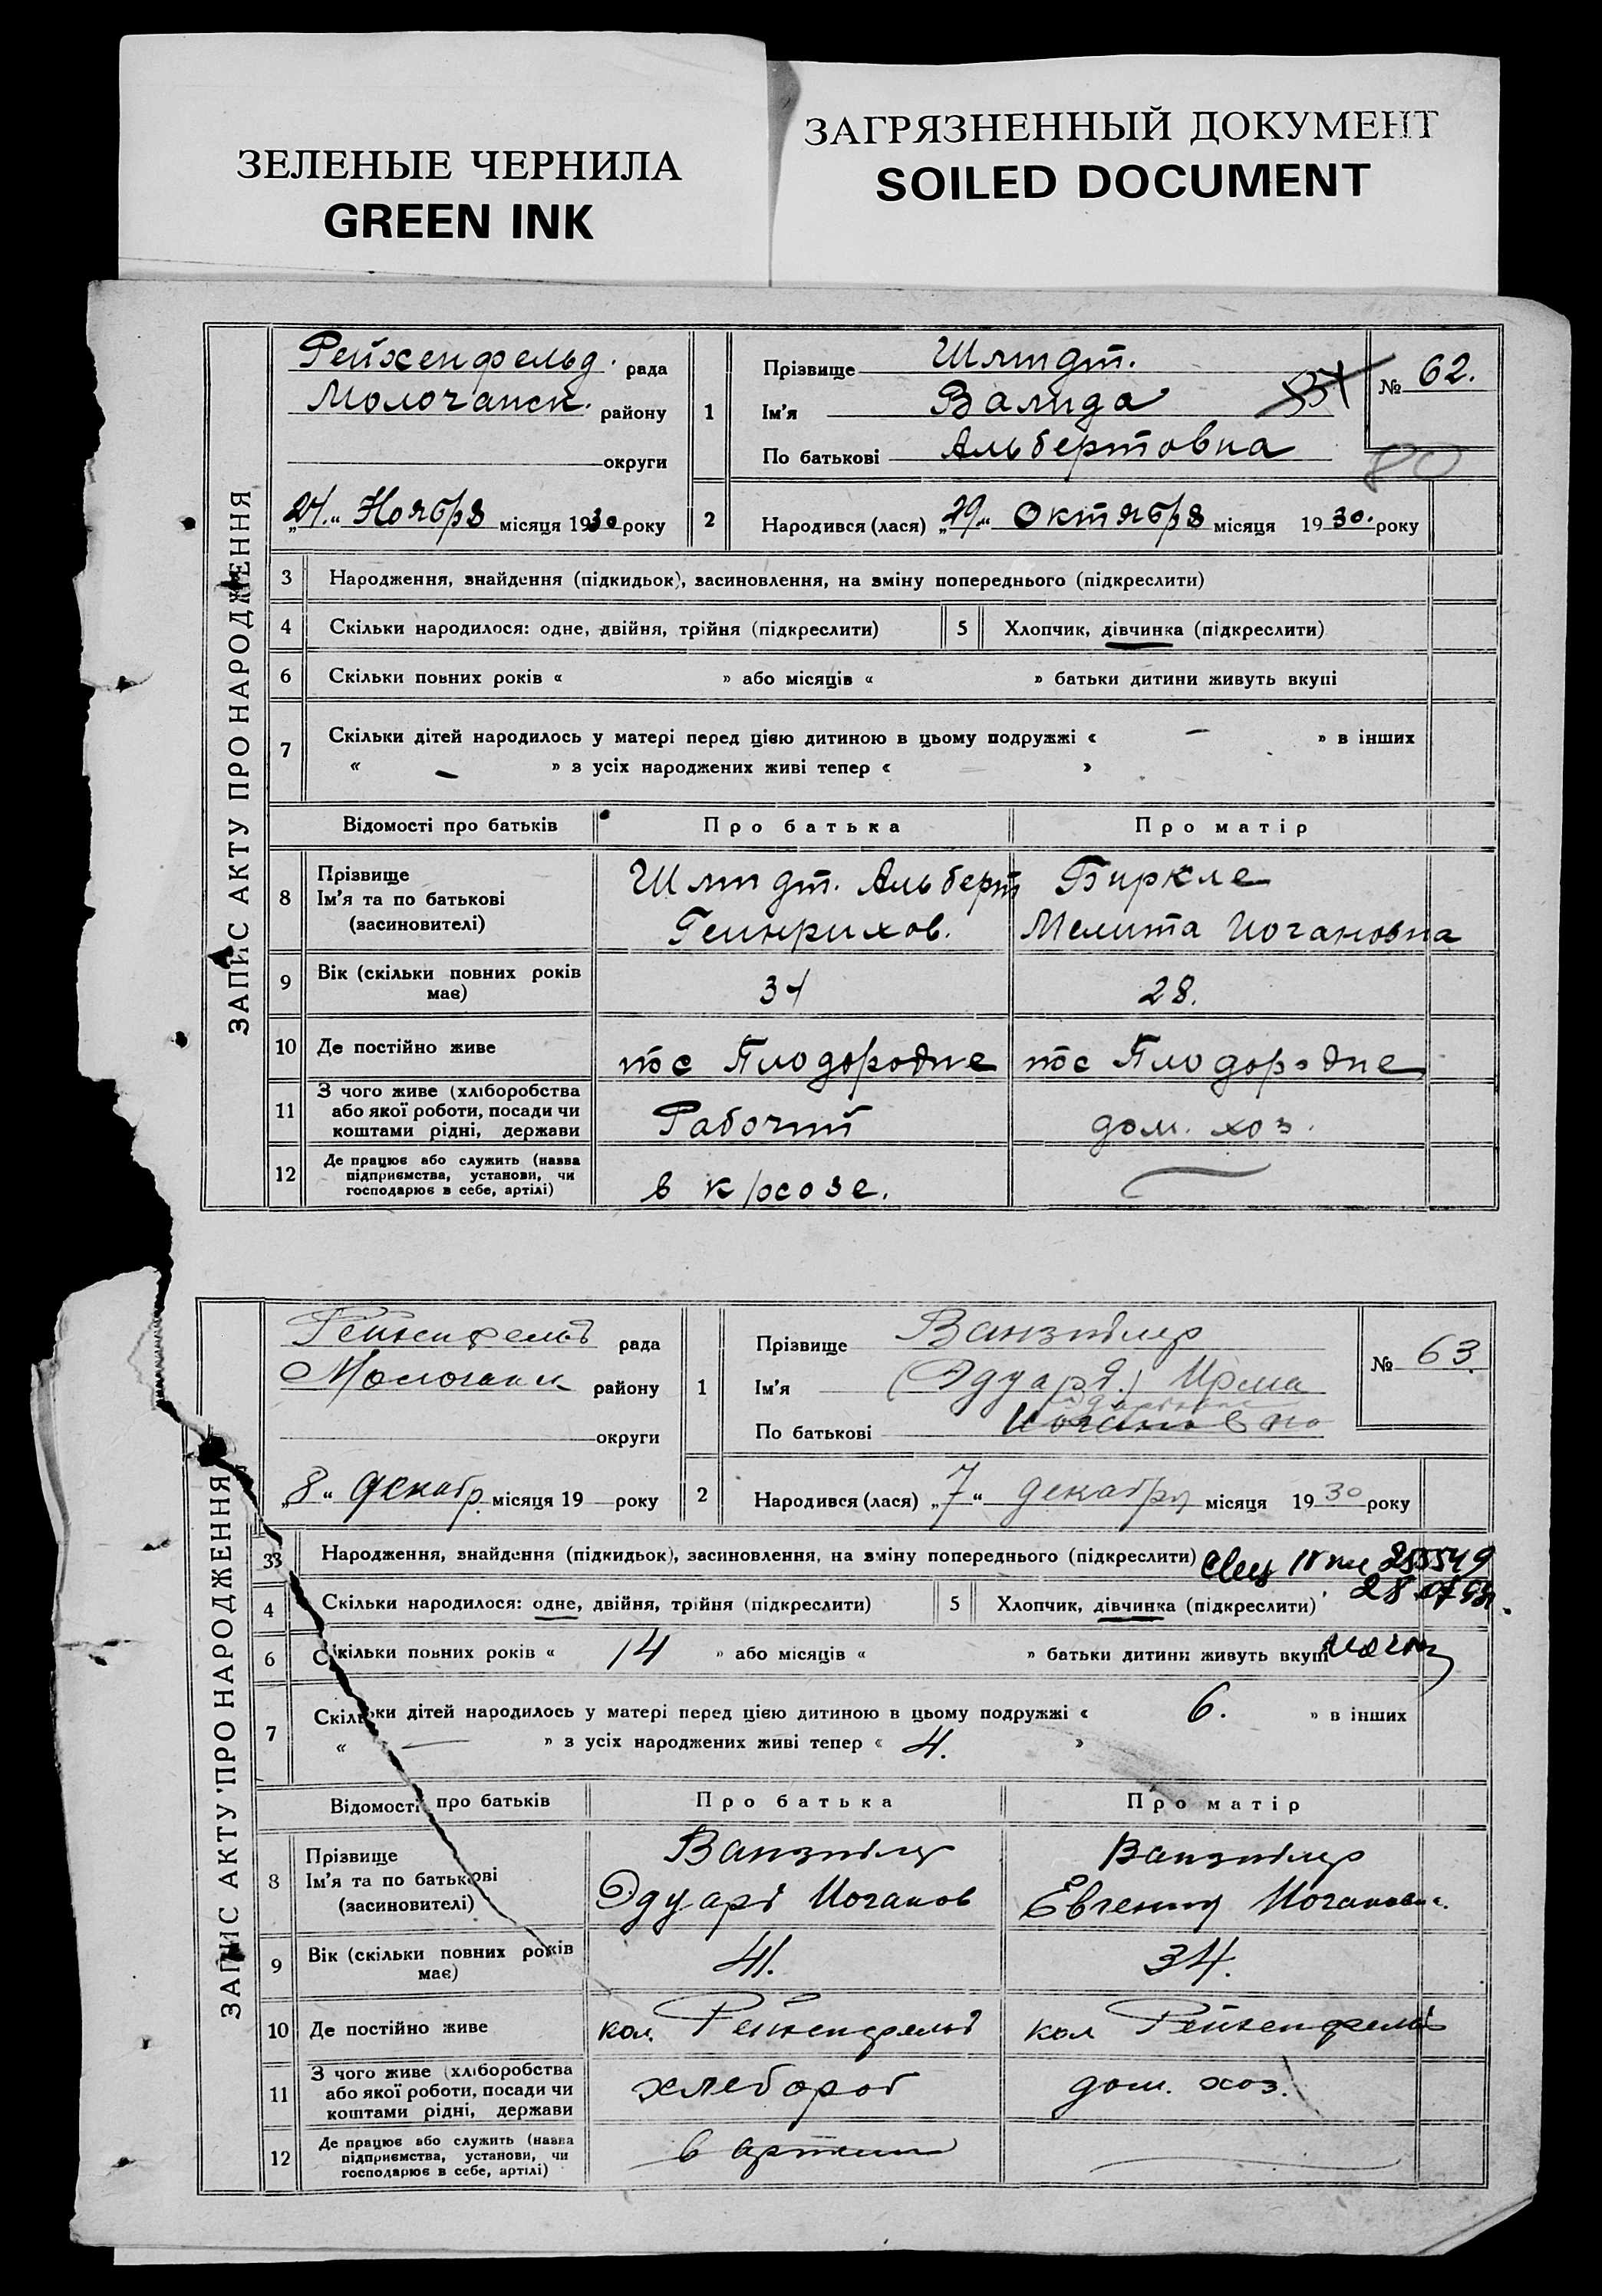 ЗЕЛЕНЫЕ ЧЕРНИЛА
GREEN INK
ЗАГРЯЗНЕННЫЙ ДОКУМЕНТ
SOILED DOCUMENT
ЗАПИС АКТУ ПРО НАРОДЖЕННЯ
Рейхенфельд. рада
Молочанск. району
округи
„27.“ Ноября місяця 1930 року
1
Прізвище Шмидт.
Ім'я Валида
По батькові Альбертовна
№ 62.
80
2
Народився (лася) „29.“ Октября місяця 1930. року
3 Народження, знайдення (підкидьок), засиновлення, на зміну попереднього (підкреслити)
4 Скільки народилося: одне, двійня, трійня (підкреслити) 5 Хлопчик, дівчинка (підкреслити)
6 Скільки повних років « » або місяців « » батьки дитини живуть вкупі
7 Скільки дітей народилось у матері перед цією дитиною в цьому подружжі « – » в інших
« – » з усіх народжених живі тепер « »
Відомості про батьків Про батька Про матір
8 Прізвище Ім'я та по батькові (засновителі)
Шмидт. Альберт Генрихов.
Биркле Мелита Иогановна
9 Вік (скільки повних років має) 34 28.
10 Де постійно живе пос Плодородне пос Плодородне
11 З чого живе (хліборобства або якої роботи, посади чи коштами рідні, держави Рабочий дом. хоз.
12 Де працює або служить (назва підприємства, установи, чи господарює в себе, артілі)
ЗАПИС АКТУ ПРО НАРОДЖЕННЯ
Рейхенфельд рада
Молочанск району
округи
„8“ декабр. місяця 19 року
1
Прізвище Ванзидлер
Ім'я (Эдуард.) Ирма
По батькові Иогановна
№ 63.
2
Народився (лася) „7“ декабря місяця 1930 року
3 Народження, знайдення (підкидьок), засиновлення, на зміну попереднього (підкреслити)
4 Скільки народилося: одне, двійня, трійня (підкреслити) 5 Хлопчик, дівчинка (підкреслити)
6 Скільки повних років « 14 » або місяців « » батьки дитини живуть вкупі
7 Скільки дітей народилось у матері перед цією дитиною в цьому подружжі « 6. » в інших
« — » з усіх народжених живі тепер « 4. »
Відомості про батьків Про батька Про матір
8 Прізвище Ім'я та по батькові (засиновителі)
Ванзидлер Эдуард Иоганов
Ванзидлер Евгения Иогановн.
9 Вік (скільки повних років має) 41. 34.
10 Де постійно живе кол. Рейхенфельд кол Рейхенфельд
11 З чого живе (хліборобства або якої роботи, посади чи коштами рідні, держави хлебороб дом. хоз.
12 Де працює або служить (назва підприємства, установи, чи господарює в себе, артілі) в артели